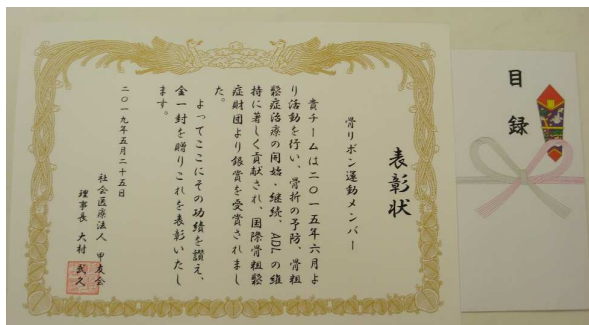 表彰状
骨リボン運動メンバー
貴チームは二〇一五年六月よ
り活動を行い、骨折の予防、骨粗
鬆症治療の開始・継続、ADLの維
持に著しく貢献され、国際骨粗鬆
症財団より銀賞を受賞されまし
た。
よってここにその功績を讃え、
金一封を贈りこれを表彰いたし
ます。
二〇一九年五月二十五日
社会医療法人 甲友会
理事長 大村 武久
目録